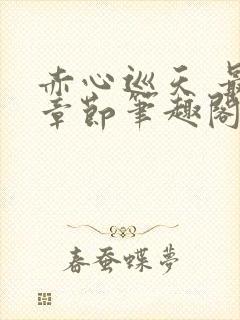 赤心巡天 最
章節筆趣閣
春蚕蝶夢